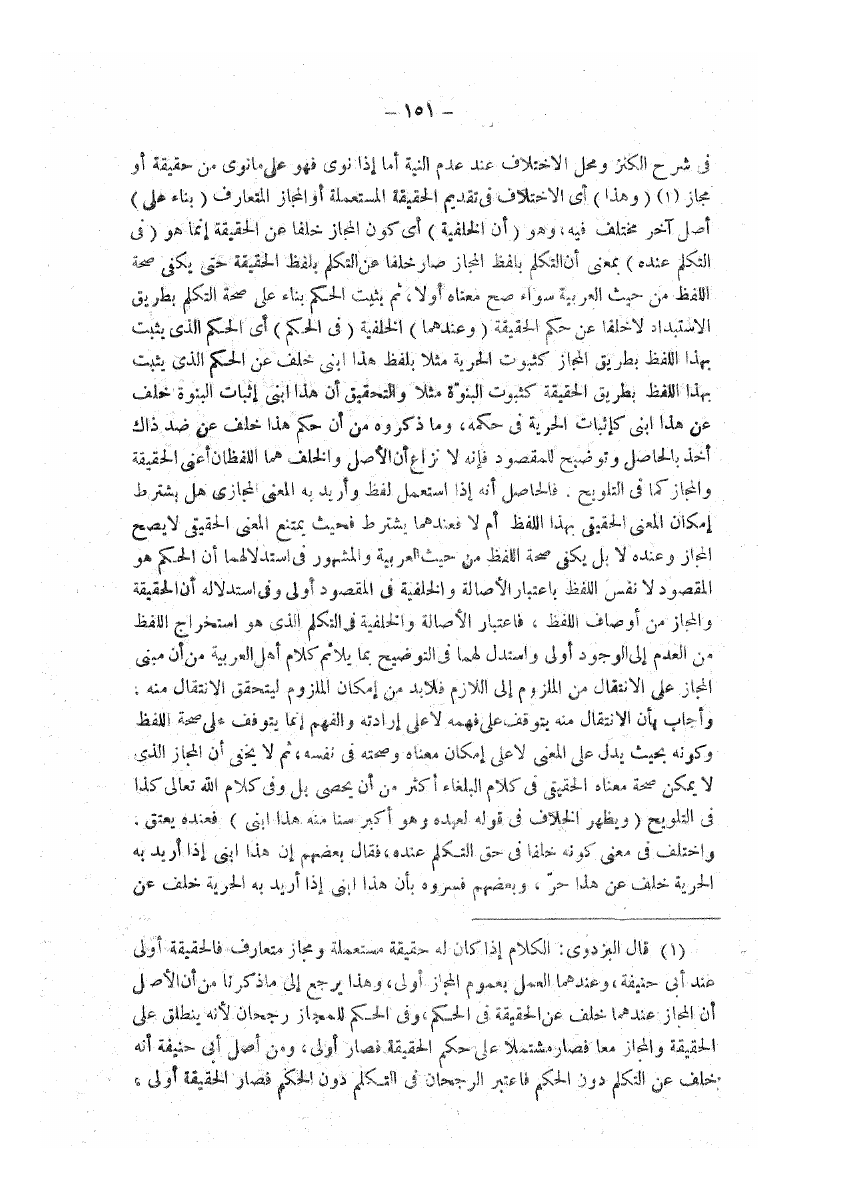 — ١٥١ —
فى شرح الكنز ومحل الاختلاف عند عدم النية أما إذا نوى فهو على مانوى من حقيقة أو
مجاز (١) ( وهذا ) أى الاختلاف فى تقديم الحقيقة المستعملة أو المجاز المتعارف ( بناء على )
أصل آخر مختلف فيه، وهو ( أن الخلفية ) أى كون المجاز خلفا عن الحقيقة إنما هو ( فى
التكلم عنده ) بمعنى أن التكلم بلفظ المجاز صار خلفا عن التكلم بلفظ الحقيقة حتى يكفى صحة
اللفظ من حيث العربية سواء صح معناه أولا، ثم يثبت الحكم بناء على صحة التكلم بطريق
الاستبداد لاخلفا عن حكم الحقيقة ( وعندهما ) الخلفية ( فى الحكم ) أى الحكم الذى يثبت
بهذا اللفظ بطريق المجاز كثبوت الحرية مثلا بلفظ هذا ابنى خلف عن الحكم الذى يثبت
بهذا اللفظ بطريق الحقيقة كثبوت البنوّة مثلا والتحقيق أن هذا ابنى إثبات البنوة خلف
عن هذا ابنى كإثبات الحرية فى حكمه، وما ذكروه من أن حكم هذا خلف عن ضد ذاك
أخذ بالحاصل وتوضيح للمقصود فإنه لا نزاع أن الأصل والخلف هما اللفظان أعنى الحقيقة
والمجاز كما فى التلويح . فالحاصل أنه إذا استعمل لفظ وأريد به المعنى المجازى هل يشترط
إمكان المعنى الحقيقى بهذا اللفظ أم لا فعندهما يشترط فحيث يمتنع المعنى الحقيقى لايصح
المجاز وعنده لا بل يكفى صحة اللفظ من حيث العربية والمشهور فى استدلالهما أن الحكم هو
المقصود لا نفس اللفظ باعتبار الأصالة والخلفية فى المقصود أولى وفى استدلاله أن الحقيقة
والمجاز من أوصاف اللفظ ، فاعتبار الأصالة والخلفية فى التكلم الذى هو استخراج اللفظ
من العدم إلى الوجود أولى واستدل لهما فى التوضيح بما يلائم كلام أهل العربية من أن مبنى
المجاز على الانتقال من الملزوم إلى اللازم فلابد من إمكان الملزوم ليتحقق الانتقال منه ؛
وأجاب بأن الانتقال منه يتوقف على فهمه لاعلى إرادته والفهم إنما يتوقف على صحة اللفظ
وكونه بحيث يدل على المعنى لاعلى إمكان معناه وصحته فى نفسه، ثم لا يخفى أن المجاز الذى
لا يمكن صحة معناه الحقيقى فى كلام البلغاء أكثر من أن يحصى بل وفى كلام الله تعالى كذا
فى التلويح ( ويظهر الخلاف فى قوله لعبده وهو أكبر سنا منه هذا ابنى ) فعنده يعتق .
واختلف فى معنى كونه خلفا فى حق التكلم عنده، فقال بعضهم إن هذا ابنى إذا أريد به
الحرية خلف عن هذا حرّ ، وبعضهم فسروه بأن هذا ابنى إذا أريد به الحرية خلف عن
(١) قال البزدوى: الكلام إذا كان له حقيقة مستعملة ومجاز متعارف فالحقيقة أولى
عند أبى حنيفة، وعندهما العمل بعموم المجاز أولى، وهذا يرجع إلى ماذكرنا من أن الأصل
أن المجاز عندهما خلف عن الحقيقة فى الحكم، وفى الحكم للمجاز رجحان لأنه ينطلق على
الحقيقة والمجاز معا فصار مشتملا على حكم الحقيقة فصار أولى، ومن أصل أبى حنيفة أنه
خلف عن التكلم دون الحكم فاعتبر الرجحان فى التكلم دون الحكم فصار الحقيقة أولى ؛